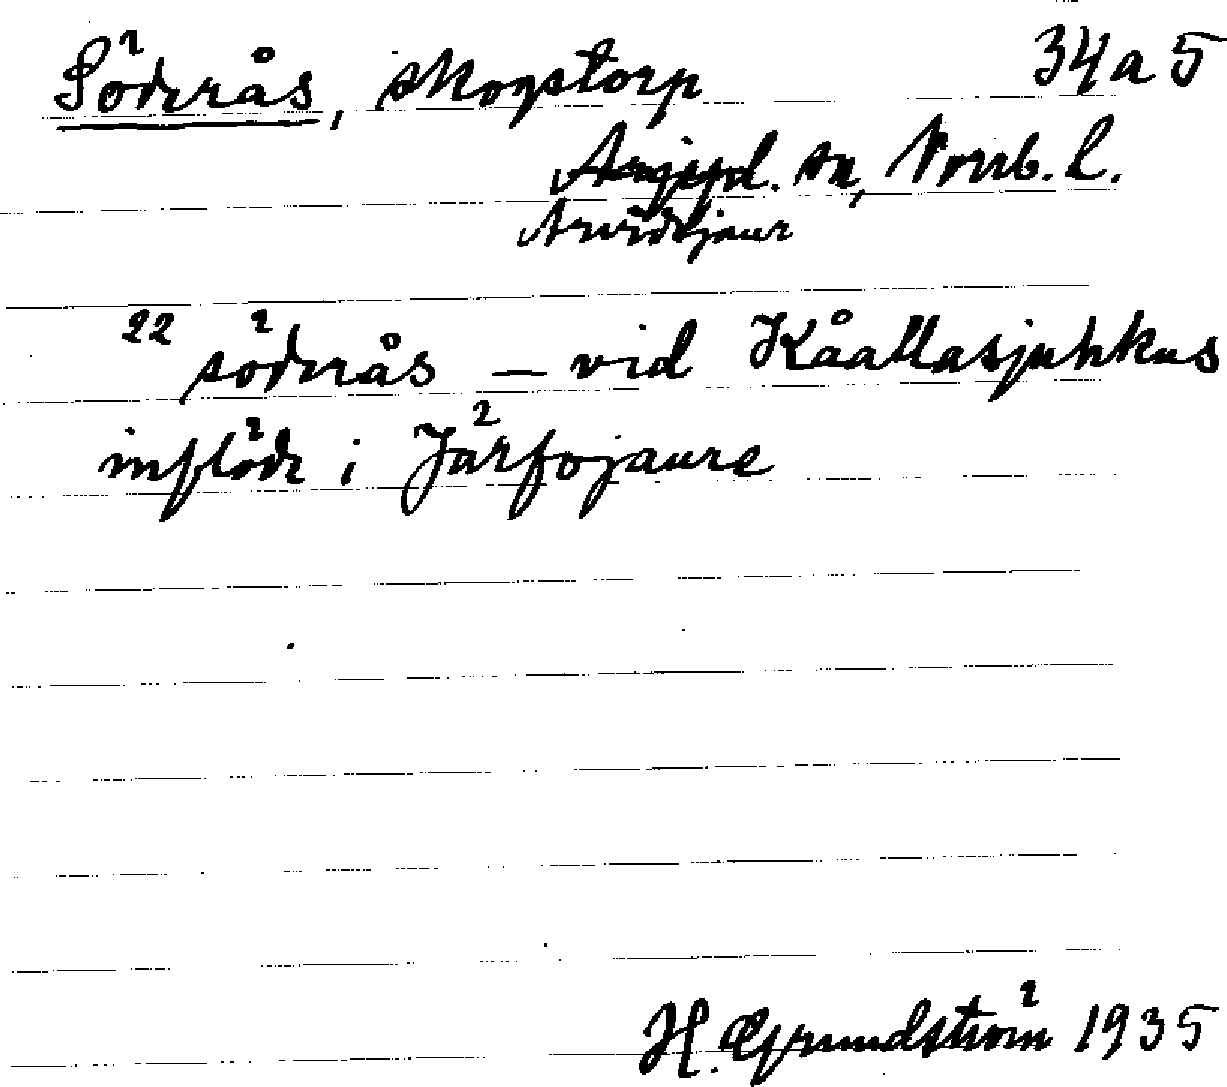 Söderås, skogstorp 34a5
Arjepl. sn, Norrb. l.
Arvidsjaur
22 söderås – vid Kåallasjuhkus
inflöde i Järfojaure
H. Grundström 1935